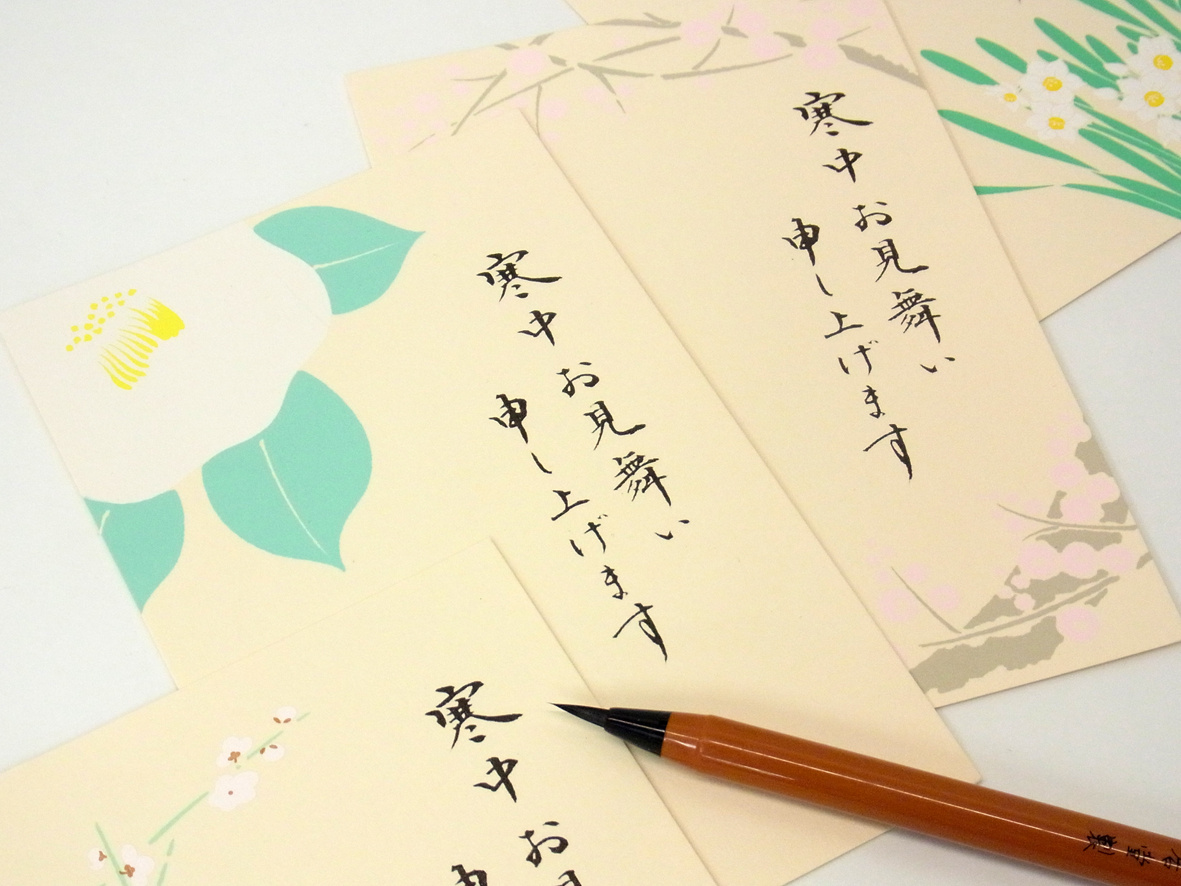 寒中お見舞い
申し上げます
寒中お見舞い
申し上げます
寒中お見
申